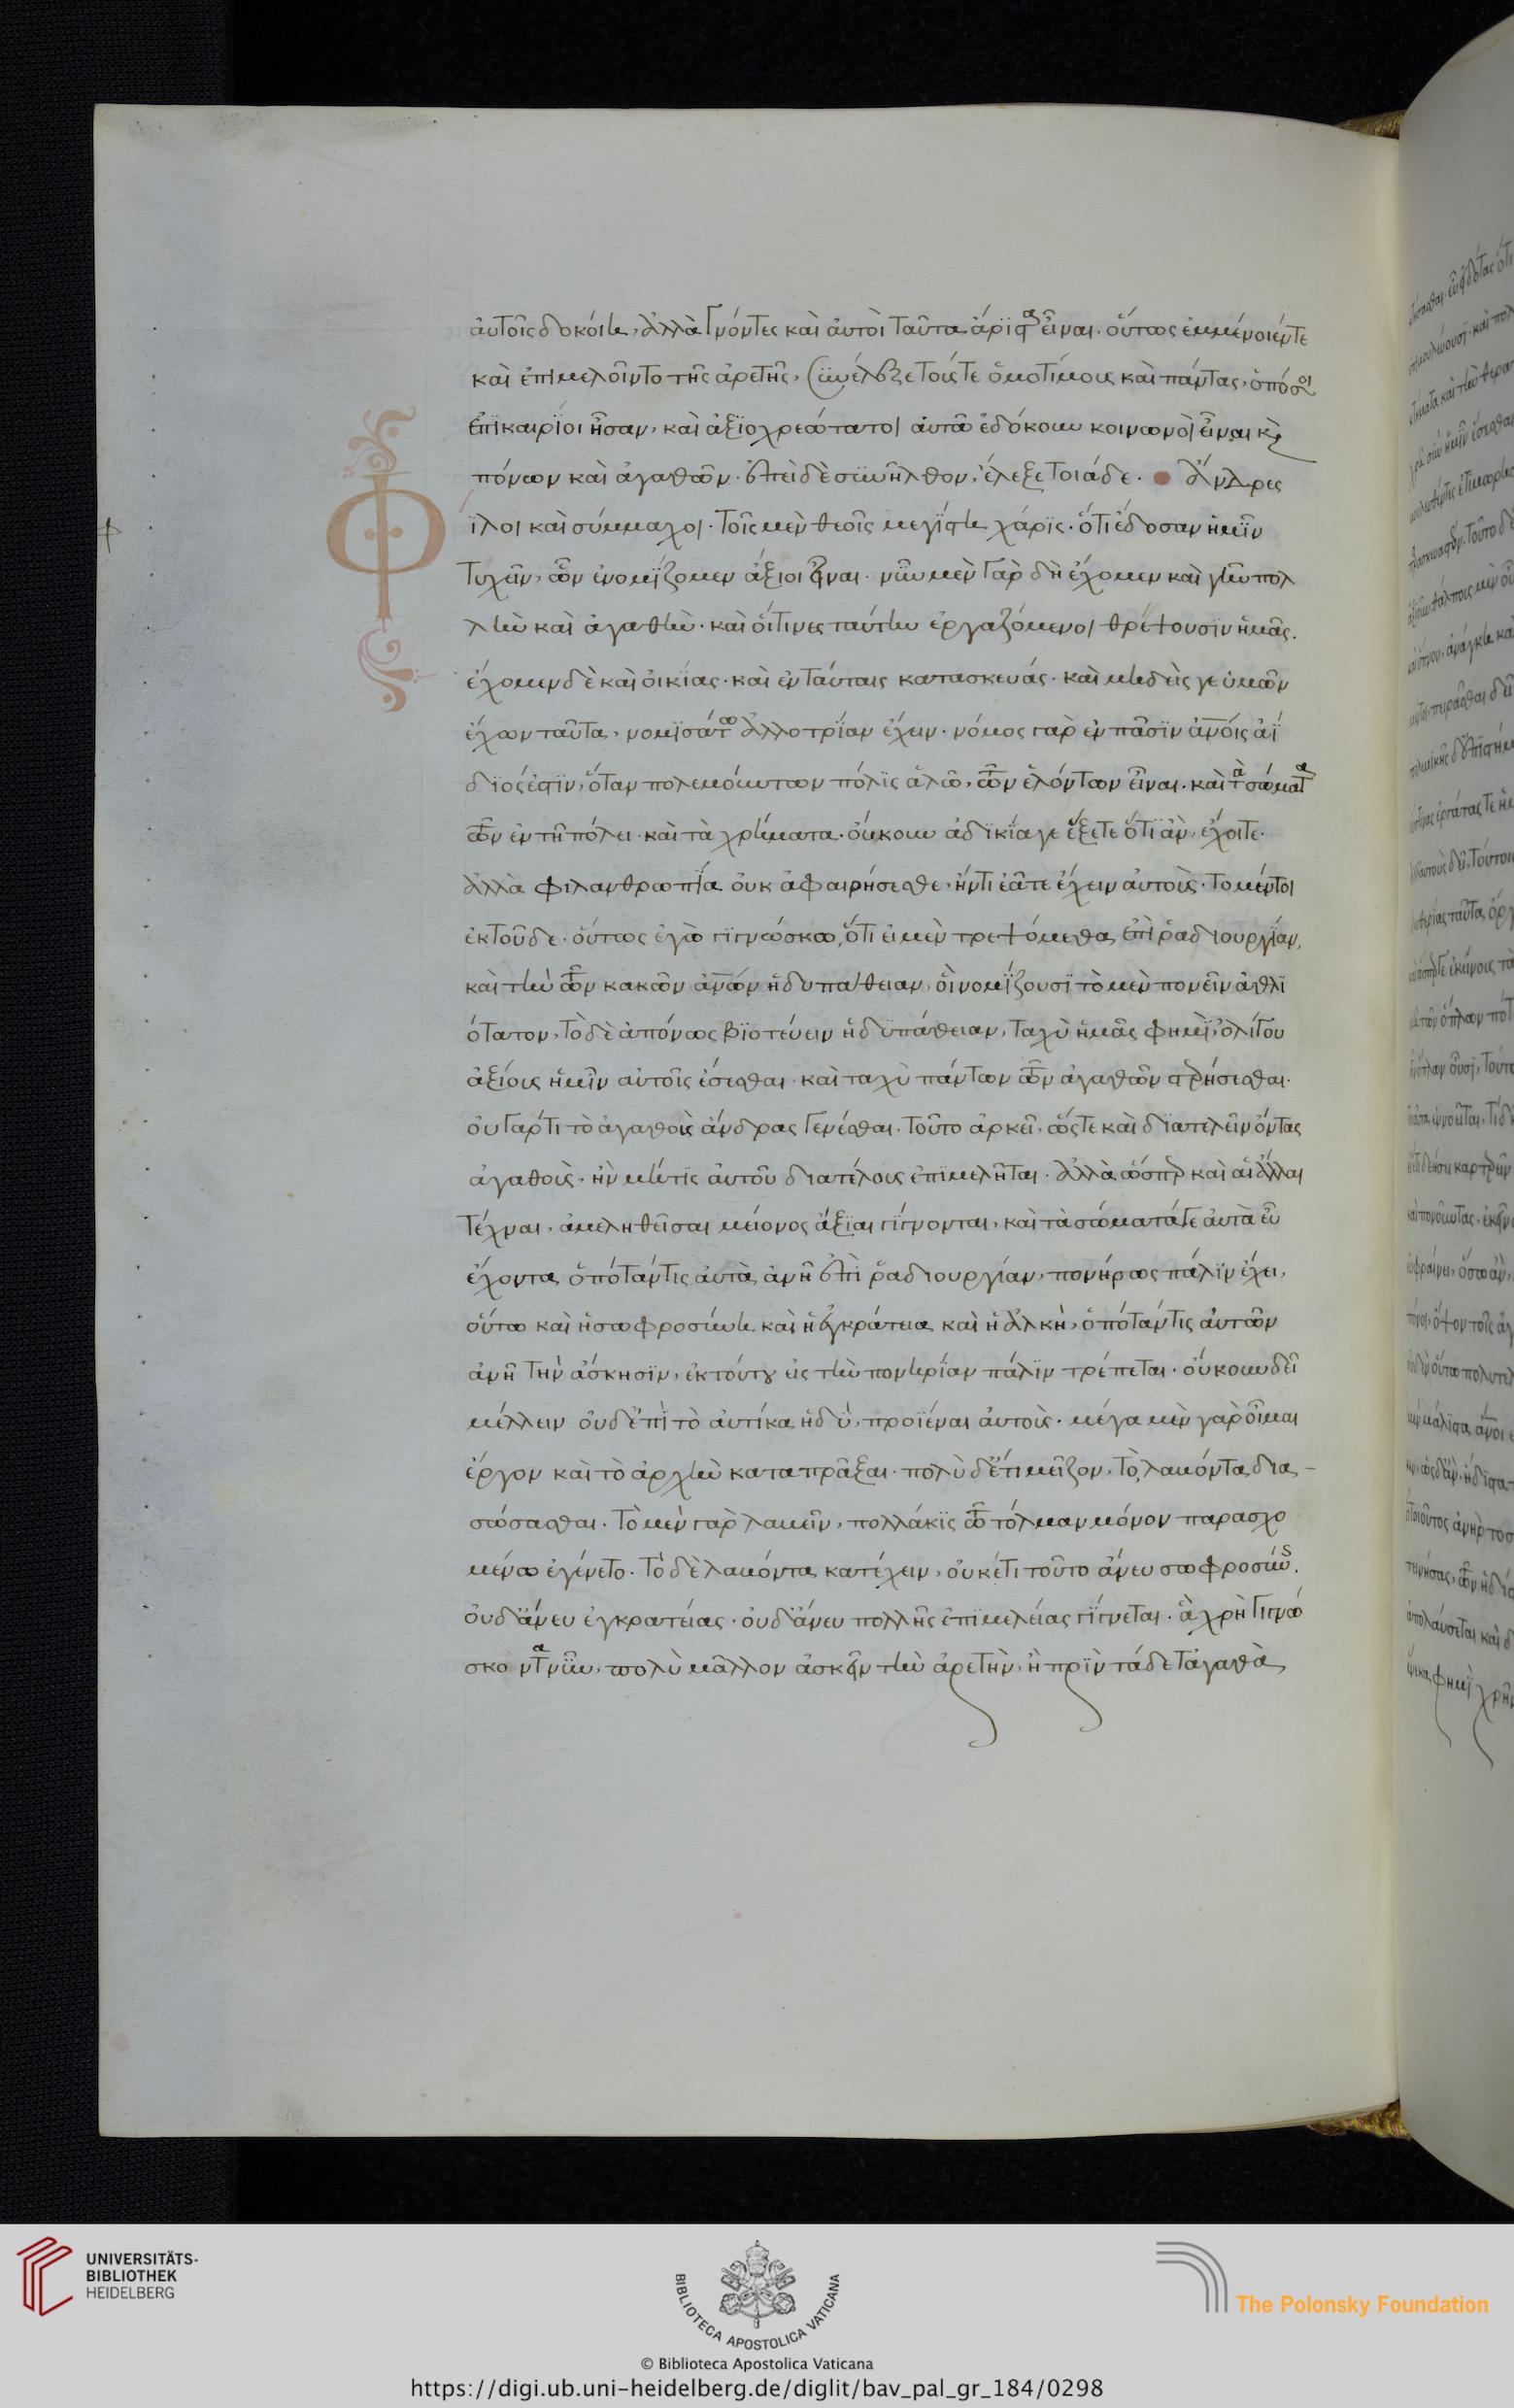 αὐτοῖς δοκοίη, ἀλλὰ γνόντες καὶ αὐτοὶ ταῦτα ἄριστα εἶναι. οὕτως ἐμμένοιέν τε
καὶ ἐπιμελοῖντο τῆς ἀρετῆς, συνέλεξε τούς τε ὁμοτίμους καὶ πάντας, ὁπόσοι
ἐπικαίριοι ἦσαν, καὶ ἀξιοχρεώτατοι αὐτῶ ἐδόκουν κοινωνοὶ εἶναι καὶ
πόνων καὶ ἀγαθῶν. ἐπεὶ δὲ συνῆλθον, ἔλεξε τοιάδε. Ἄνδρες
Φ
φ
ίλοι καὶ σύμμαχοι. τοῖς μὲν θεοῖς μεγίστη χάρις. ὅτι ἔδοσαν ἡμῖν
τυχεῖν, ὧν ἐνομίζομεν ἄξιοι εἶναι. νῦν μὲν γὰρ δὴ ἔχομεν καὶ γῆν πολ
λὴν καὶ ἀγαθήν. καὶ οἵτινες ταύτην ἐργαζόμενοι θρέψουσιν ἡμᾶς.
ἔχομεν δὲ καὶ οἰκίας. καὶ ἐν ταύταις κατασκευάς. καὶ μηδεὶς γε ὑμῶν
ἔχων ταῦτα, νομισάτω ἀλλοτρίαν ἔχειν. νόμος γὰρ ἐν πᾶσιν ἀνοις ἀΐ
διός ἐστιν, ὅταν πολεμούντων πόλις ἁλῶ, τῶν ἑλόντων εἶναι. καὶ τὰ σώματα
τῶν ἐν τῆ πόλει. καὶ τὰ χρήματα. οὔκουν ἀδικία γε ἕξετε ὅτι ἂν, ἔχοιτε.
ἀλλὰ φιλανθρωπία οὐκ ἀφαιρήσεσθε, ἤν τι ἐᾶτε ἔχειν αὐτούς. τὸ μέντοι
ἐκ τοῦδε. οὕτως ἐγὼ γιγνώσκω, ὅτι εἰ μὲν τρεψόμεθα ἐπὶ ῥαδιουργίαν,
καὶ τὴν τῶν κακῶν ἀνων ἡδυπάθειαν, οἳ νομίζουσι τὸ μὲν πονεῖν ἀθλι
ότατον, τὸ δὲ ἀπόνως βιοτεύειν ἡδυπάθειαν, ταχὺ ἡμᾶς φημὶ, ὀλίγου
ἀξίους ἡμῖν αὐτοῖς ἔσεσθαι. καὶ ταχὺ πάντων τῶν ἀγαθῶν στερήσεσθαι.
οὐ γάρ τι τὸ ἀγαθοὺς ἄνδρας γενέσθαι. τοῦτο ἀρκεῖ, ὥστε καὶ διατελεῖν ὄντας
ἀγαθοὺς, ἢν μή τις αὐτοῦ διατέλους ἐπιμελῆται. ἀλλὰ ὥσπερ καὶ αἱ ἄλλαι
τέχναι, ἀμεληθεῖσαι μείονος ἄξιαι γίγνονται, καὶ τὰ σώματά γε αὐτὰ εὖ
ἔχοντα, ὁπόταν τις αὐτὰ ἀνῆ ἐπὶ ῥαδιουργίαν, πονήρως πάλιν ἔχει,
οὕτω καὶ ἡ σωφροσύνη καὶ ἡ ἐγκράτεια καὶ ἡ ἀλκὴ, ὁπόταν τις αὐτῶν
ἀνῆ τὴν ἄσκησιν, ἐκ τούτου εἰς τὴν πονηρίαν πάλιν τρέπεται. οὔκουν δεῖ
μέλλειν οὐδ' ἐπὶ τὸ αὐτίκα ἡδὺ, προϊέναι αὐτούς. μέγα μὲν γὰρ οἶμαι
ἔργον καὶ τὸ ἀρχὴν καταπρᾶξαι. πολὺ δ' ἔτι μεῖζον, τὸ λαβόντα δια-
σώσασθαι. τὸ μὲν γὰρ λαβεῖν, πολλάκις τῶ τόλμαν μόνον παρασχο
μένω ἐγένετο. τὸ δὲ λαβόντα κατέχειν, οὐκέτι τοῦτο ἄνευ σωφροσύνης.
οὐδ' ἄνευ ἐγκρατείας. οὐδ' ἄνευ πολλῆς ἐπιμελείας γίγνεται. ἃ χρὴ γιγνώ
σκοντα νῦν, πολὺ μᾶλλον ἀσκεῖν τὴν ἀρετὴν, ἢ πρὶν τάδε τἀγαθὰ
UNIVERSITÄTS-
BIBLIOTHEK
HEIDELBERG
BIBLIOTECA APOSTOLICA VATICANA
The Polonsky Foundation
© Biblioteca Apostolica Vaticana
https://digi.ub.uni-heidelberg.de/diglit/bav_pal_gr_184/0298